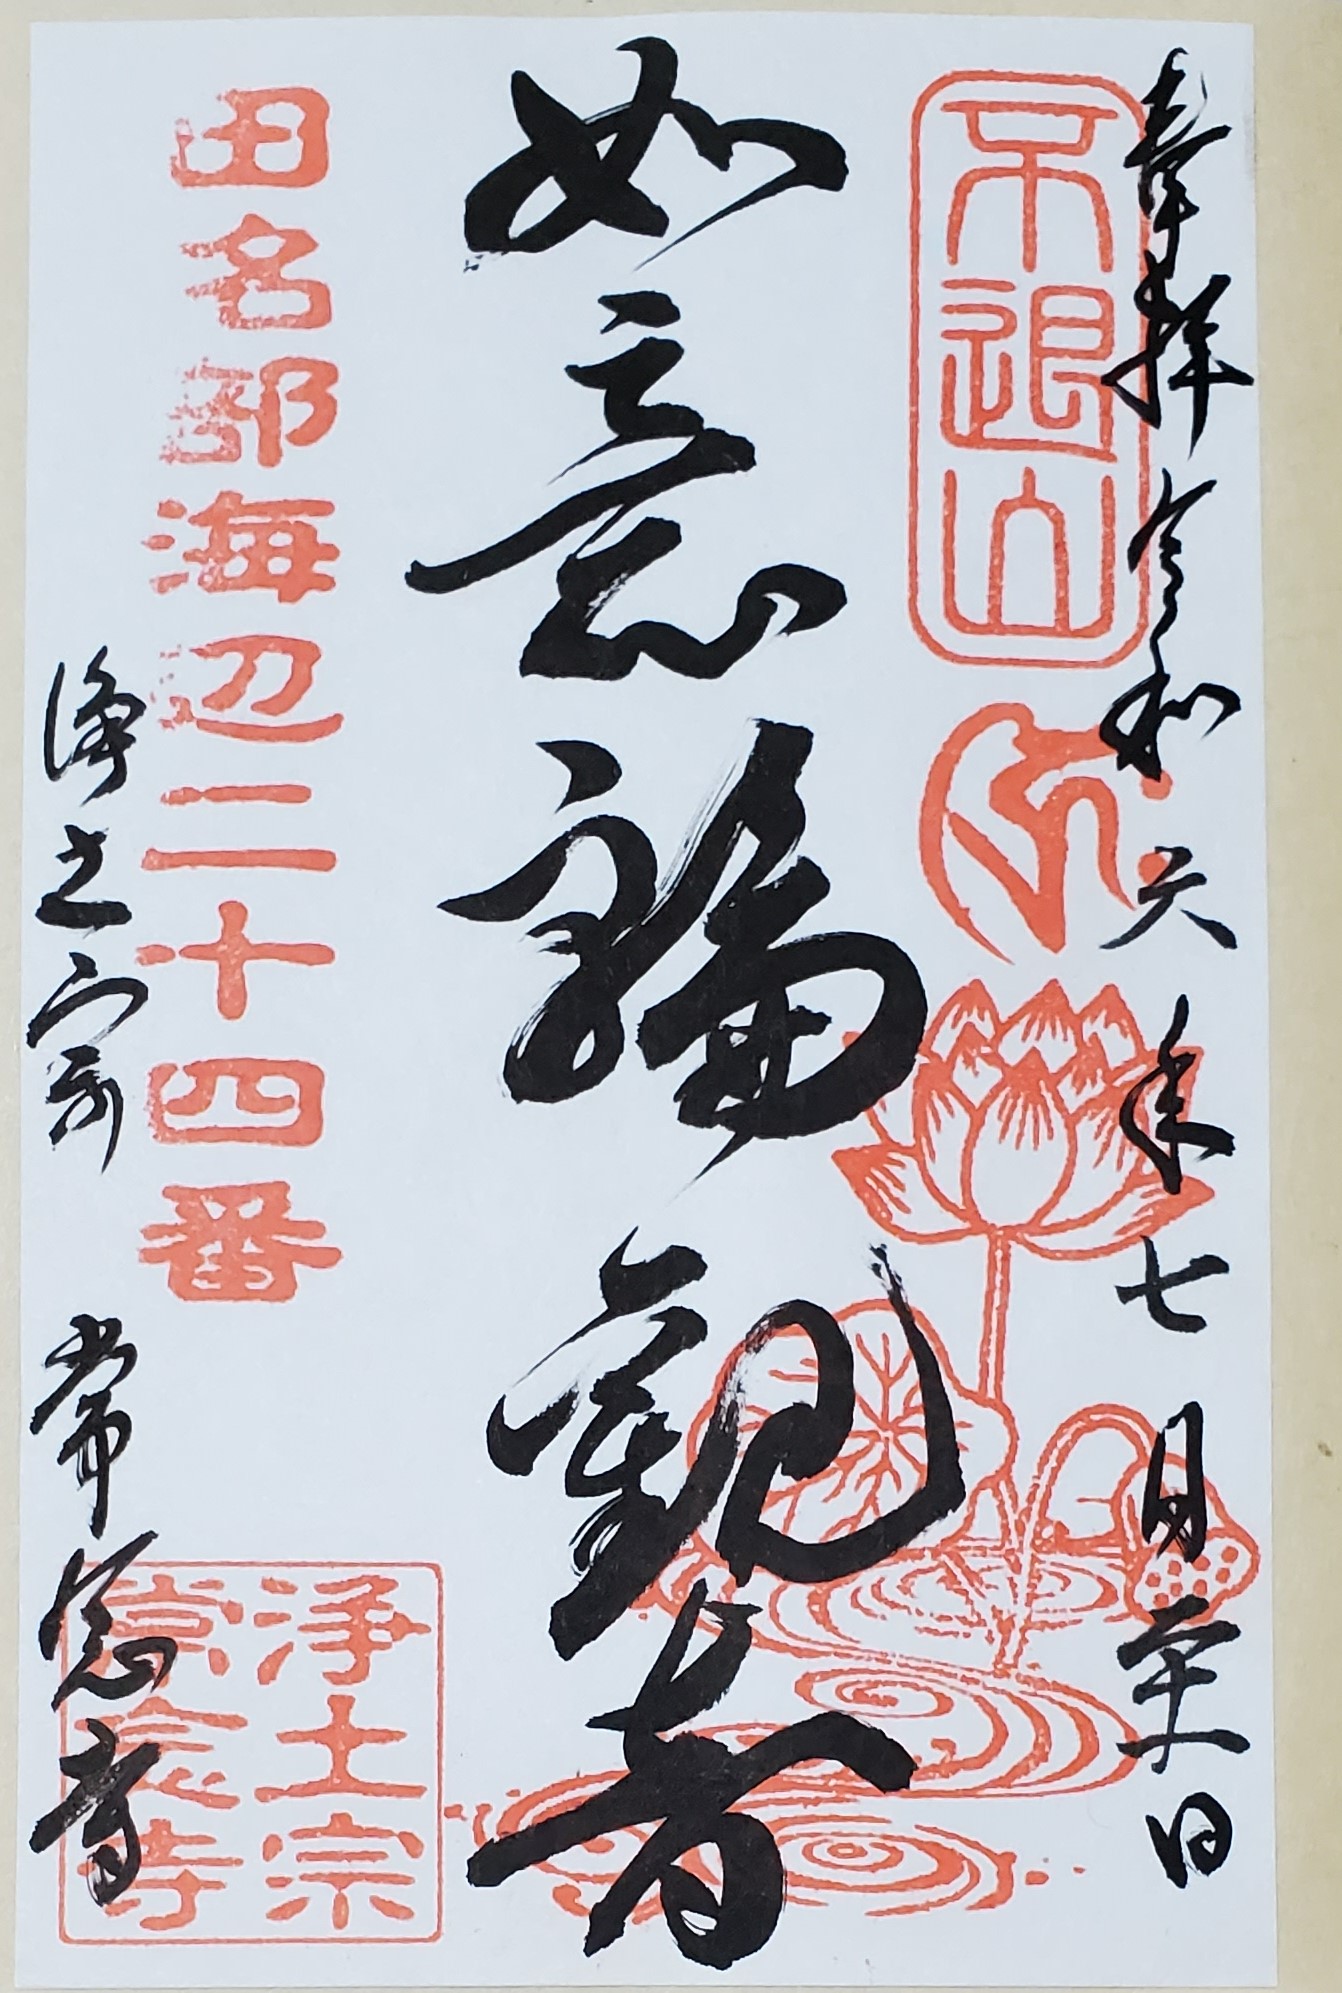 奉拝 令和六年七月二十一日
不退山
如意輪観音
田名部海辺二十四番
浄土宗 常念寺
浄土宗
常念寺